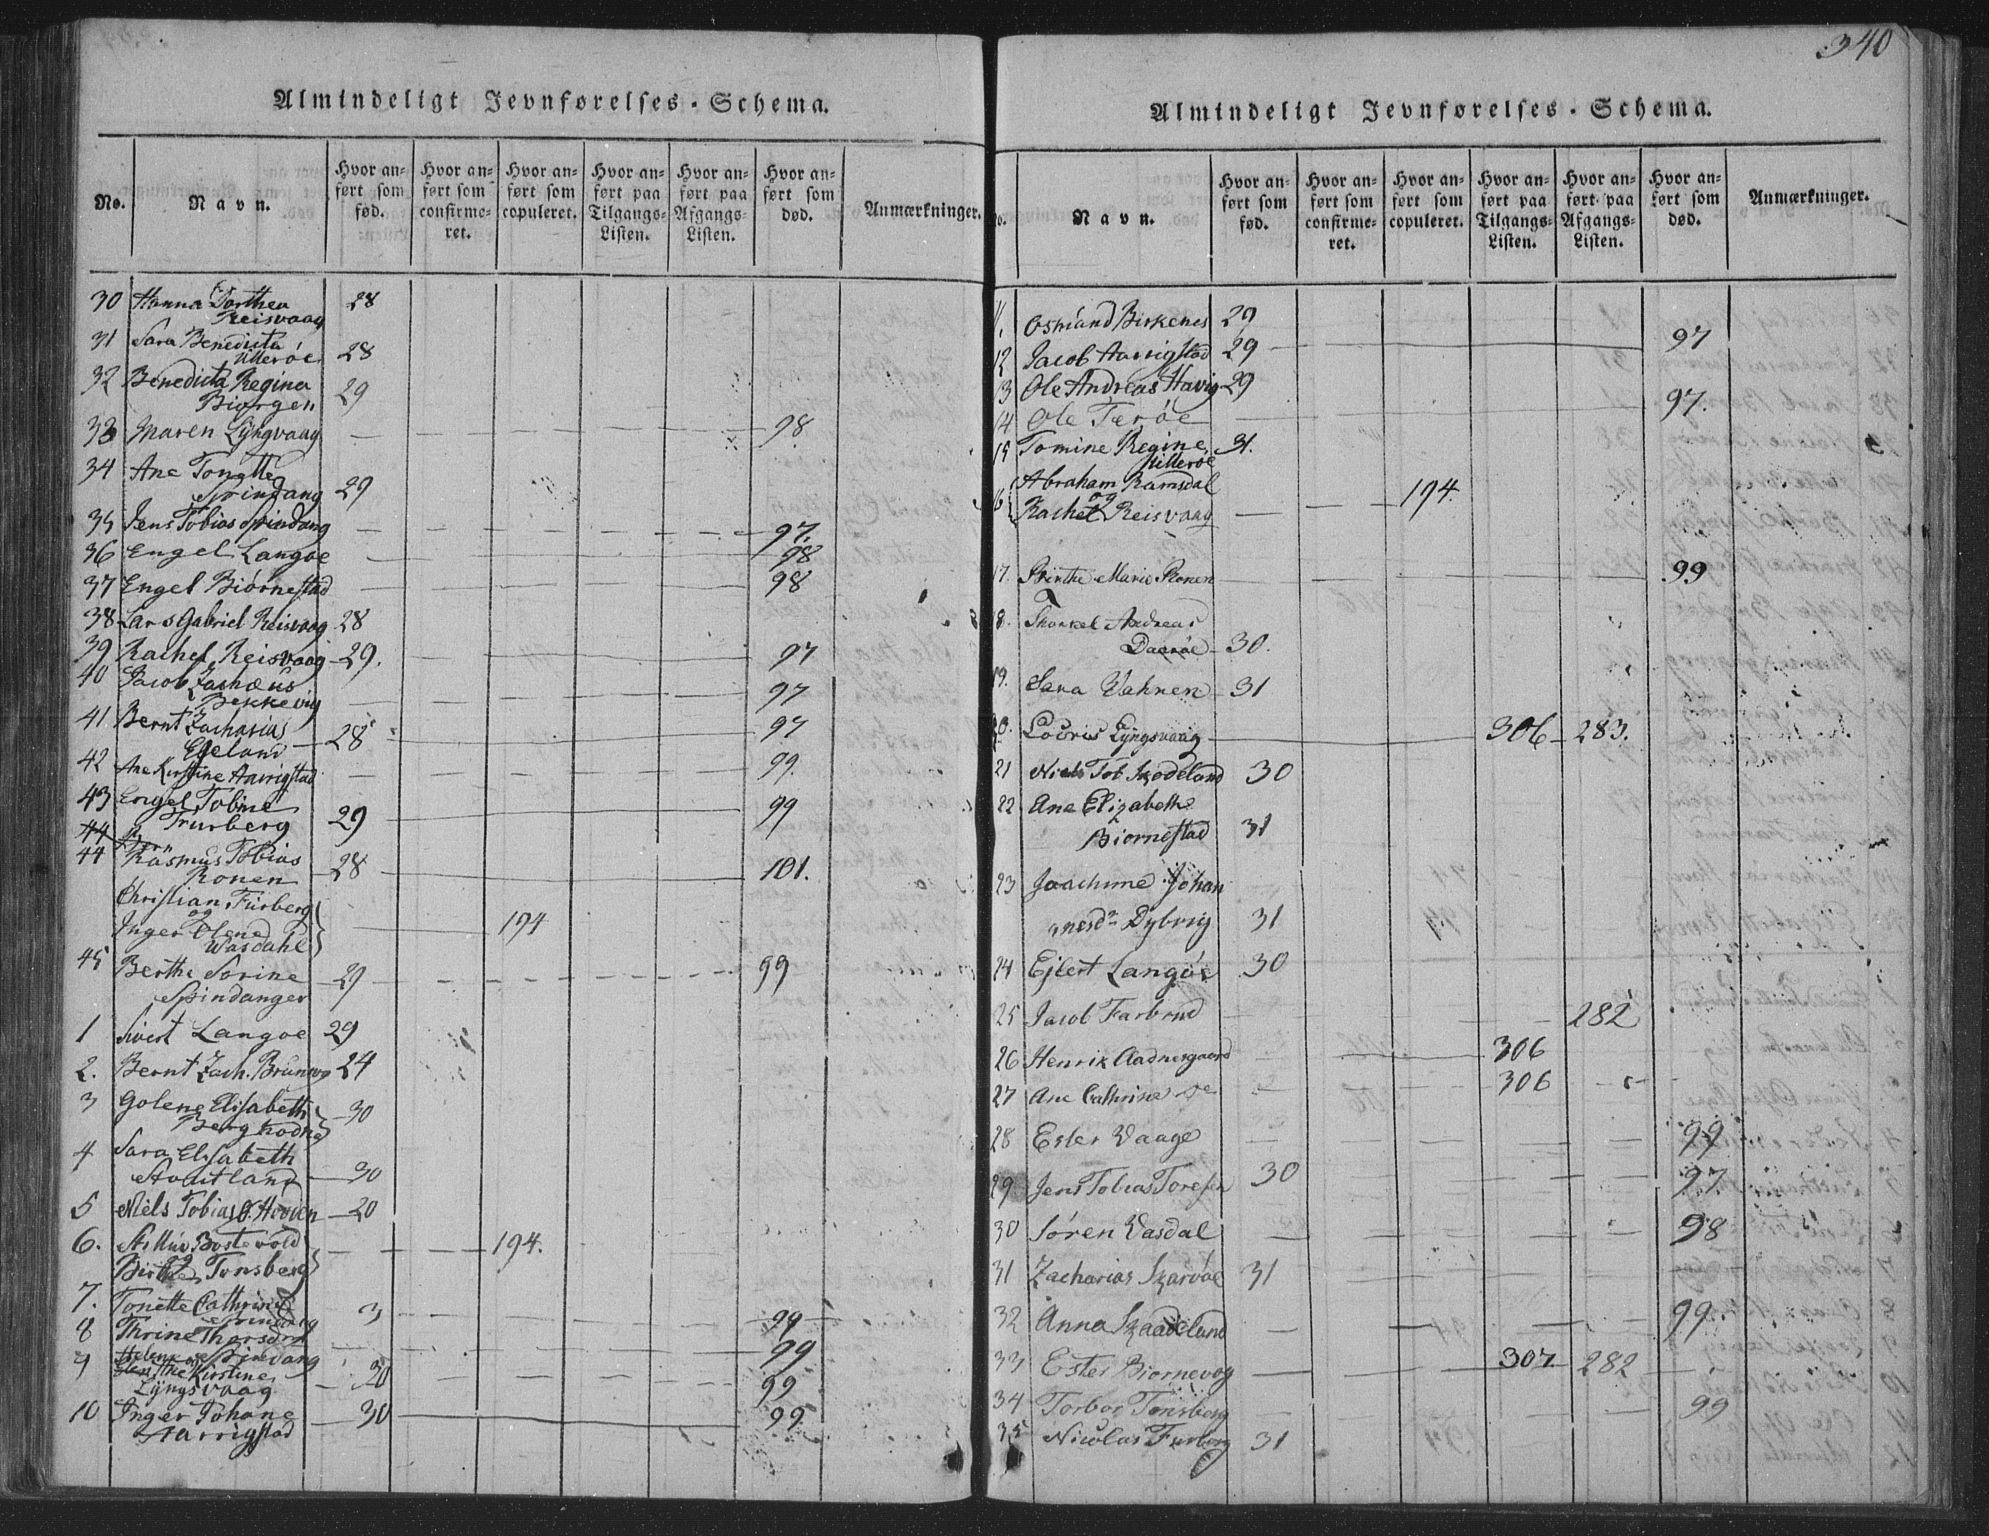 340
Almindeligt Jevnførelses-Schema.
No.
Navn.
Hvor anført som fød.
Hvor anført som confirmeret.
Hvor anført som copuleret.
Hvor anført paa Tilgangs-Listen.
Hvor anført paa Afgangs-Listen.
Hvor anført som død.
Anmærkninger.
30 Hanna Dorthea 28
Reisvaag
31 Sara Benedicta
Utterøe 28
32 Benedicta Regina 29
Biørgen
33 Maren Lÿngvaag 98
34 Ane Tonette
Spindang 29
35 Jens Tobias Spindang 97.
36 Engel Langøe 98
37 Engel Biørnestad 98
38 Lars Gabriel Reisvaag 28
39 Rachel Reisvaag 29. 97
40 Jacob Zachæus
Bekkevig 97
41 Bernt Zacharias 28 97
Egeland
42 Ane Kirstine Aarrigstad 99.
43 Engel Tobine 99
Frurberg 29
44
44 Rasmus Tobias 28 101.
Ronen
Christian Furberg
og 194
Inger Olene
Wasdahl
45 Berthe Sorine 29 99
Spindanger
1 Sivert Langoe 29
2. Bernt Zach. 24
3 Golene Elisabeth 30
4 Sara Elisabeth
30
5 Niels Tobias 20
6. 194.
og Tonsberg
7. Tonette Cathrine 3 99
8 Thrine 99
9 Helene Spindang
Kirstine 30 99
Lÿngsvaag
10 Inger Johane 30 99.
Aarrigstad
Almindeligt Jevnførelses-Schema.
No.
Navn.
Hvor anført som fød.
Hvor anført som confirmeret.
Hvor anført som copuleret.
Hvor anført paa Tilgangs-Listen.
Hvor anført paa Afgangs-Listen.
Hvor anført som død.
Anmærkninger.
11. Osmund Birkenes 29
12 Jacob Aarrigstad 29 97
13 Ole Andreas Havig 29
14 Ole Færøe 97.
15 Tomine Regine 31.
Hitterøe
16 Abraham Ramsdal
og 194.
Rachel Reisvaag
17. Birthe Marie Ronen 99
18. Thorkel Andreas
Daarøe 30.
19. Sara Vahnen 31
20. Lovris Lÿngsvaag 306 283.
21 Niels Tob Skodeland 30
22 Ane Elizabeth
Biornestad 31
23 Joachime Johan
nesd Dybvig 31
24 Ejlert Langøe 30
25 Jacob Farbrud 282
26 Henrik Aadnesgaard 306
27 Ane Cathrine 306
28 Ester Vaage 99
29 Jens Tobias Toresen 30 97
30 Søren Vasdal 98
31 Zacharias Skarvøe 31
32 Anna Skaadeland 99
33 Ester Biornevog 307 282
34 Torbor Tonsberg 99
35 Nicolas Furberg 31